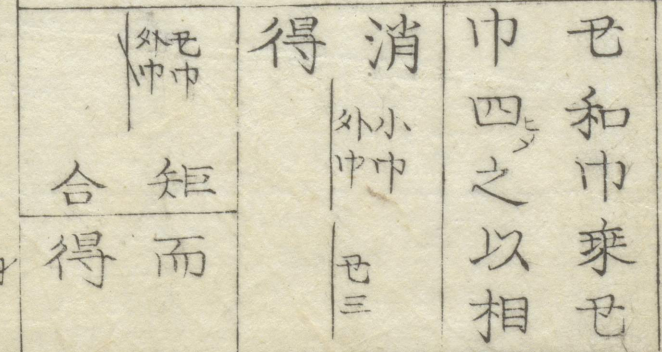 和巾乗
巾四之以相
消
小巾
外巾
三
得
巾
外巾
矩
合
而
得